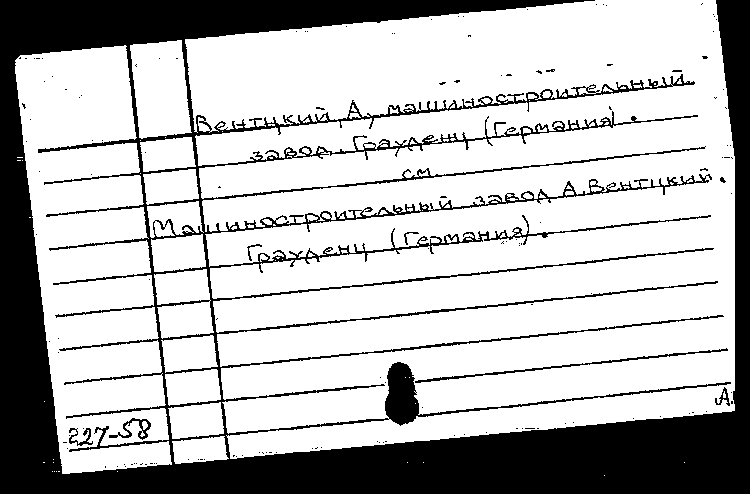 Вентцкий, А., машиностроительный
завод. Грауденц (Германия).
см.
Машиностроительный завод А. Вентцкий.
Грауденц (Германия).
227-58
А.